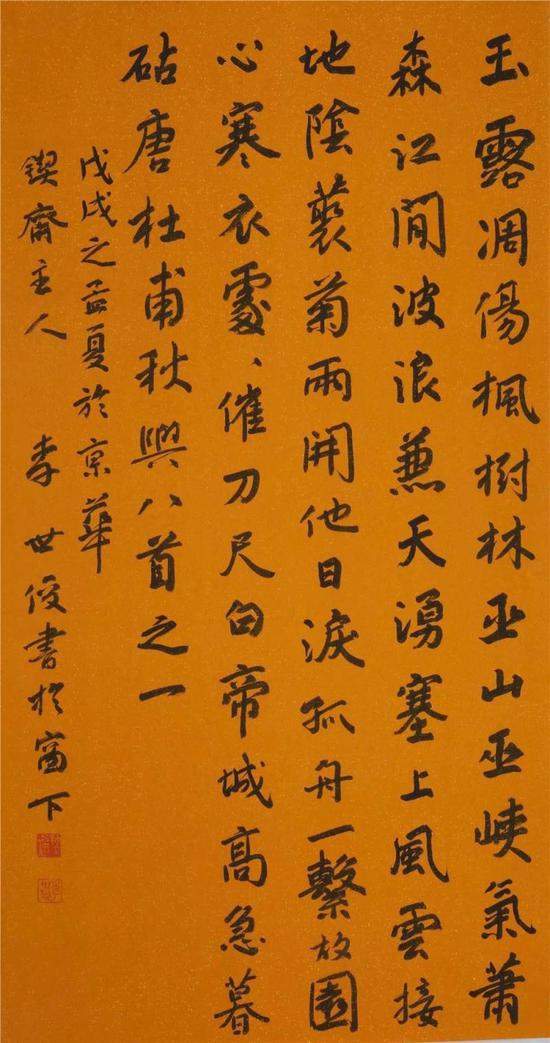 玉露凋傷楓樹林巫山巫峽氣蕭
森江間波浪兼天湧塞上風雲接
地陰藂菊兩開他日淚孤舟一繫故園
心寒衣處、催刀尺白帝城高急暮
砧唐杜甫秋興八首之一
戊戌之孟夏於京華
鍥齋主人 李世俊書於窗下